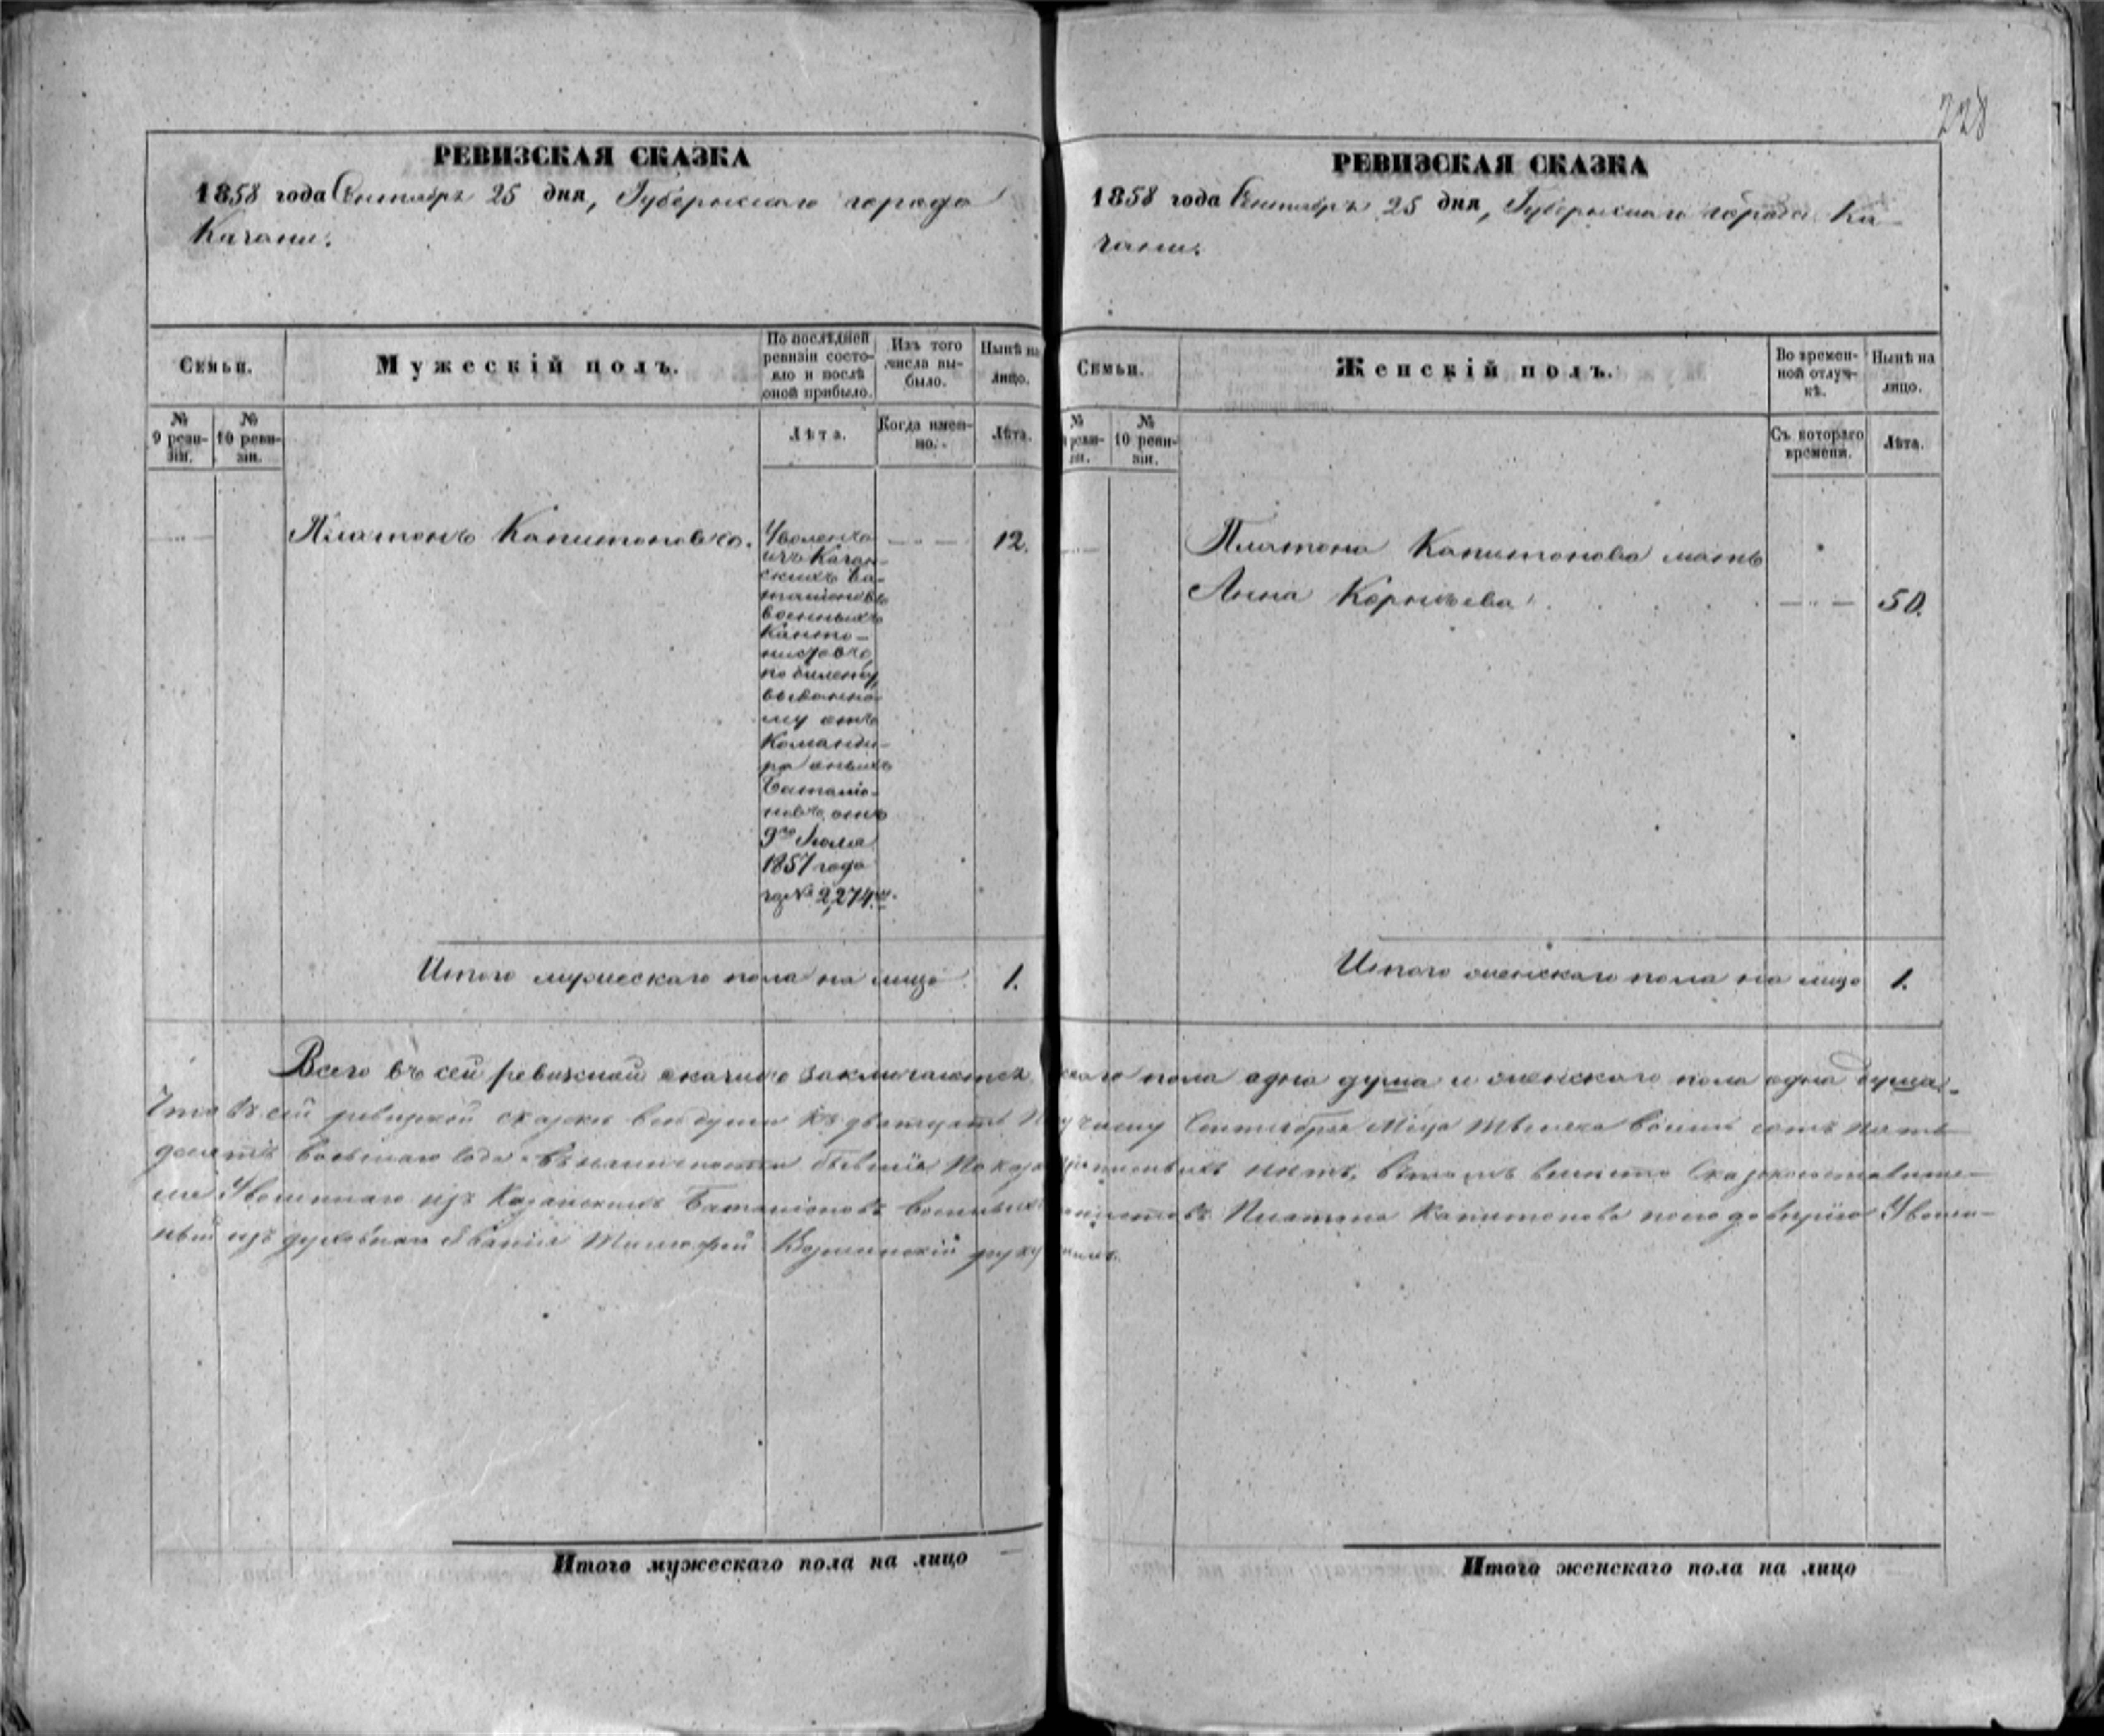 228
РЕВИЗСКАЯ СКАЗКА
1858 года Сентября 25 дня, Губернскаго города
Казани.
Семьи.
Мужескій полъ.
По послѣдней
ревизіи состо-
яло и послѣ
оной прибыло.
Изъ того
числа вы-
было.
Нынѣ на
лицо.
№
9 реви-
зіи.
№
10 реви-
зіи.
Лѣта.
Когда имен-
но.
Лѣта.
Платонъ Капитоновъ.
12.
Уволенъ
изъ Казан-
скихъ Ба-
таліоновъ
военныхъ
Канто-
нистовъ,
по билету,
выданно-
му отъ
Команди-
ра оныхъ
Баталіо-
новъ, отъ
9го Іюля
1857 года
за № 2,274.м
Итого мужескаго пола на лицо 1.
РЕВИЗСКАЯ СКАЗКА
1858 года Сентября 25 дня, Губернскаго города Ка-
зани.
Семьи.
Женскій полъ.
Во времен-
ной отлуч-
кѣ.
Нынѣ на
лицо.
№
реви-
зіи.
№
10 реви-
зіи.
Съ котораго
времени.
Лѣта.
Платона Капитонова мать
Анна Корнѣева 50.
Итого женскаго пола на лицо 1.
Всего въ сей ревизской сказкѣ заключается скаго пола одна душа и женскаго пола одна душа.
Что въ сей ревизской сказки все души къ двадцать Сентября Мца тысяча восемь сотъ Пять
десятъ восьмаго года въ наличности бывшіе нѣтъ, въ томъ вместо Сказкоподавите-
ля Уволеннаго изъ Казанскихъ Баталіоновъ военныхъ Платона Капитонова по его доверію Уволе-
ный изъ духовнаго званія Тимофей
Итого мужескаго пола на лицо
Итого женскаго пола на лицо